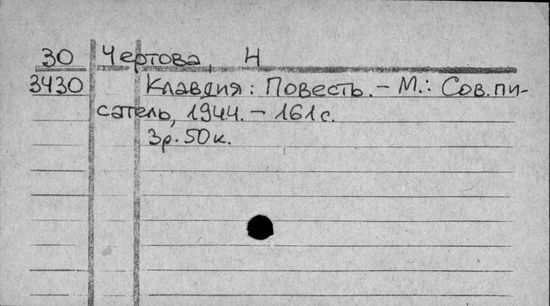 30 Чертова, Н
3430 Клавдия: Повесть. - М.: Сов. пи-
сатель, 1944. - 161 с.
3р. 50к.